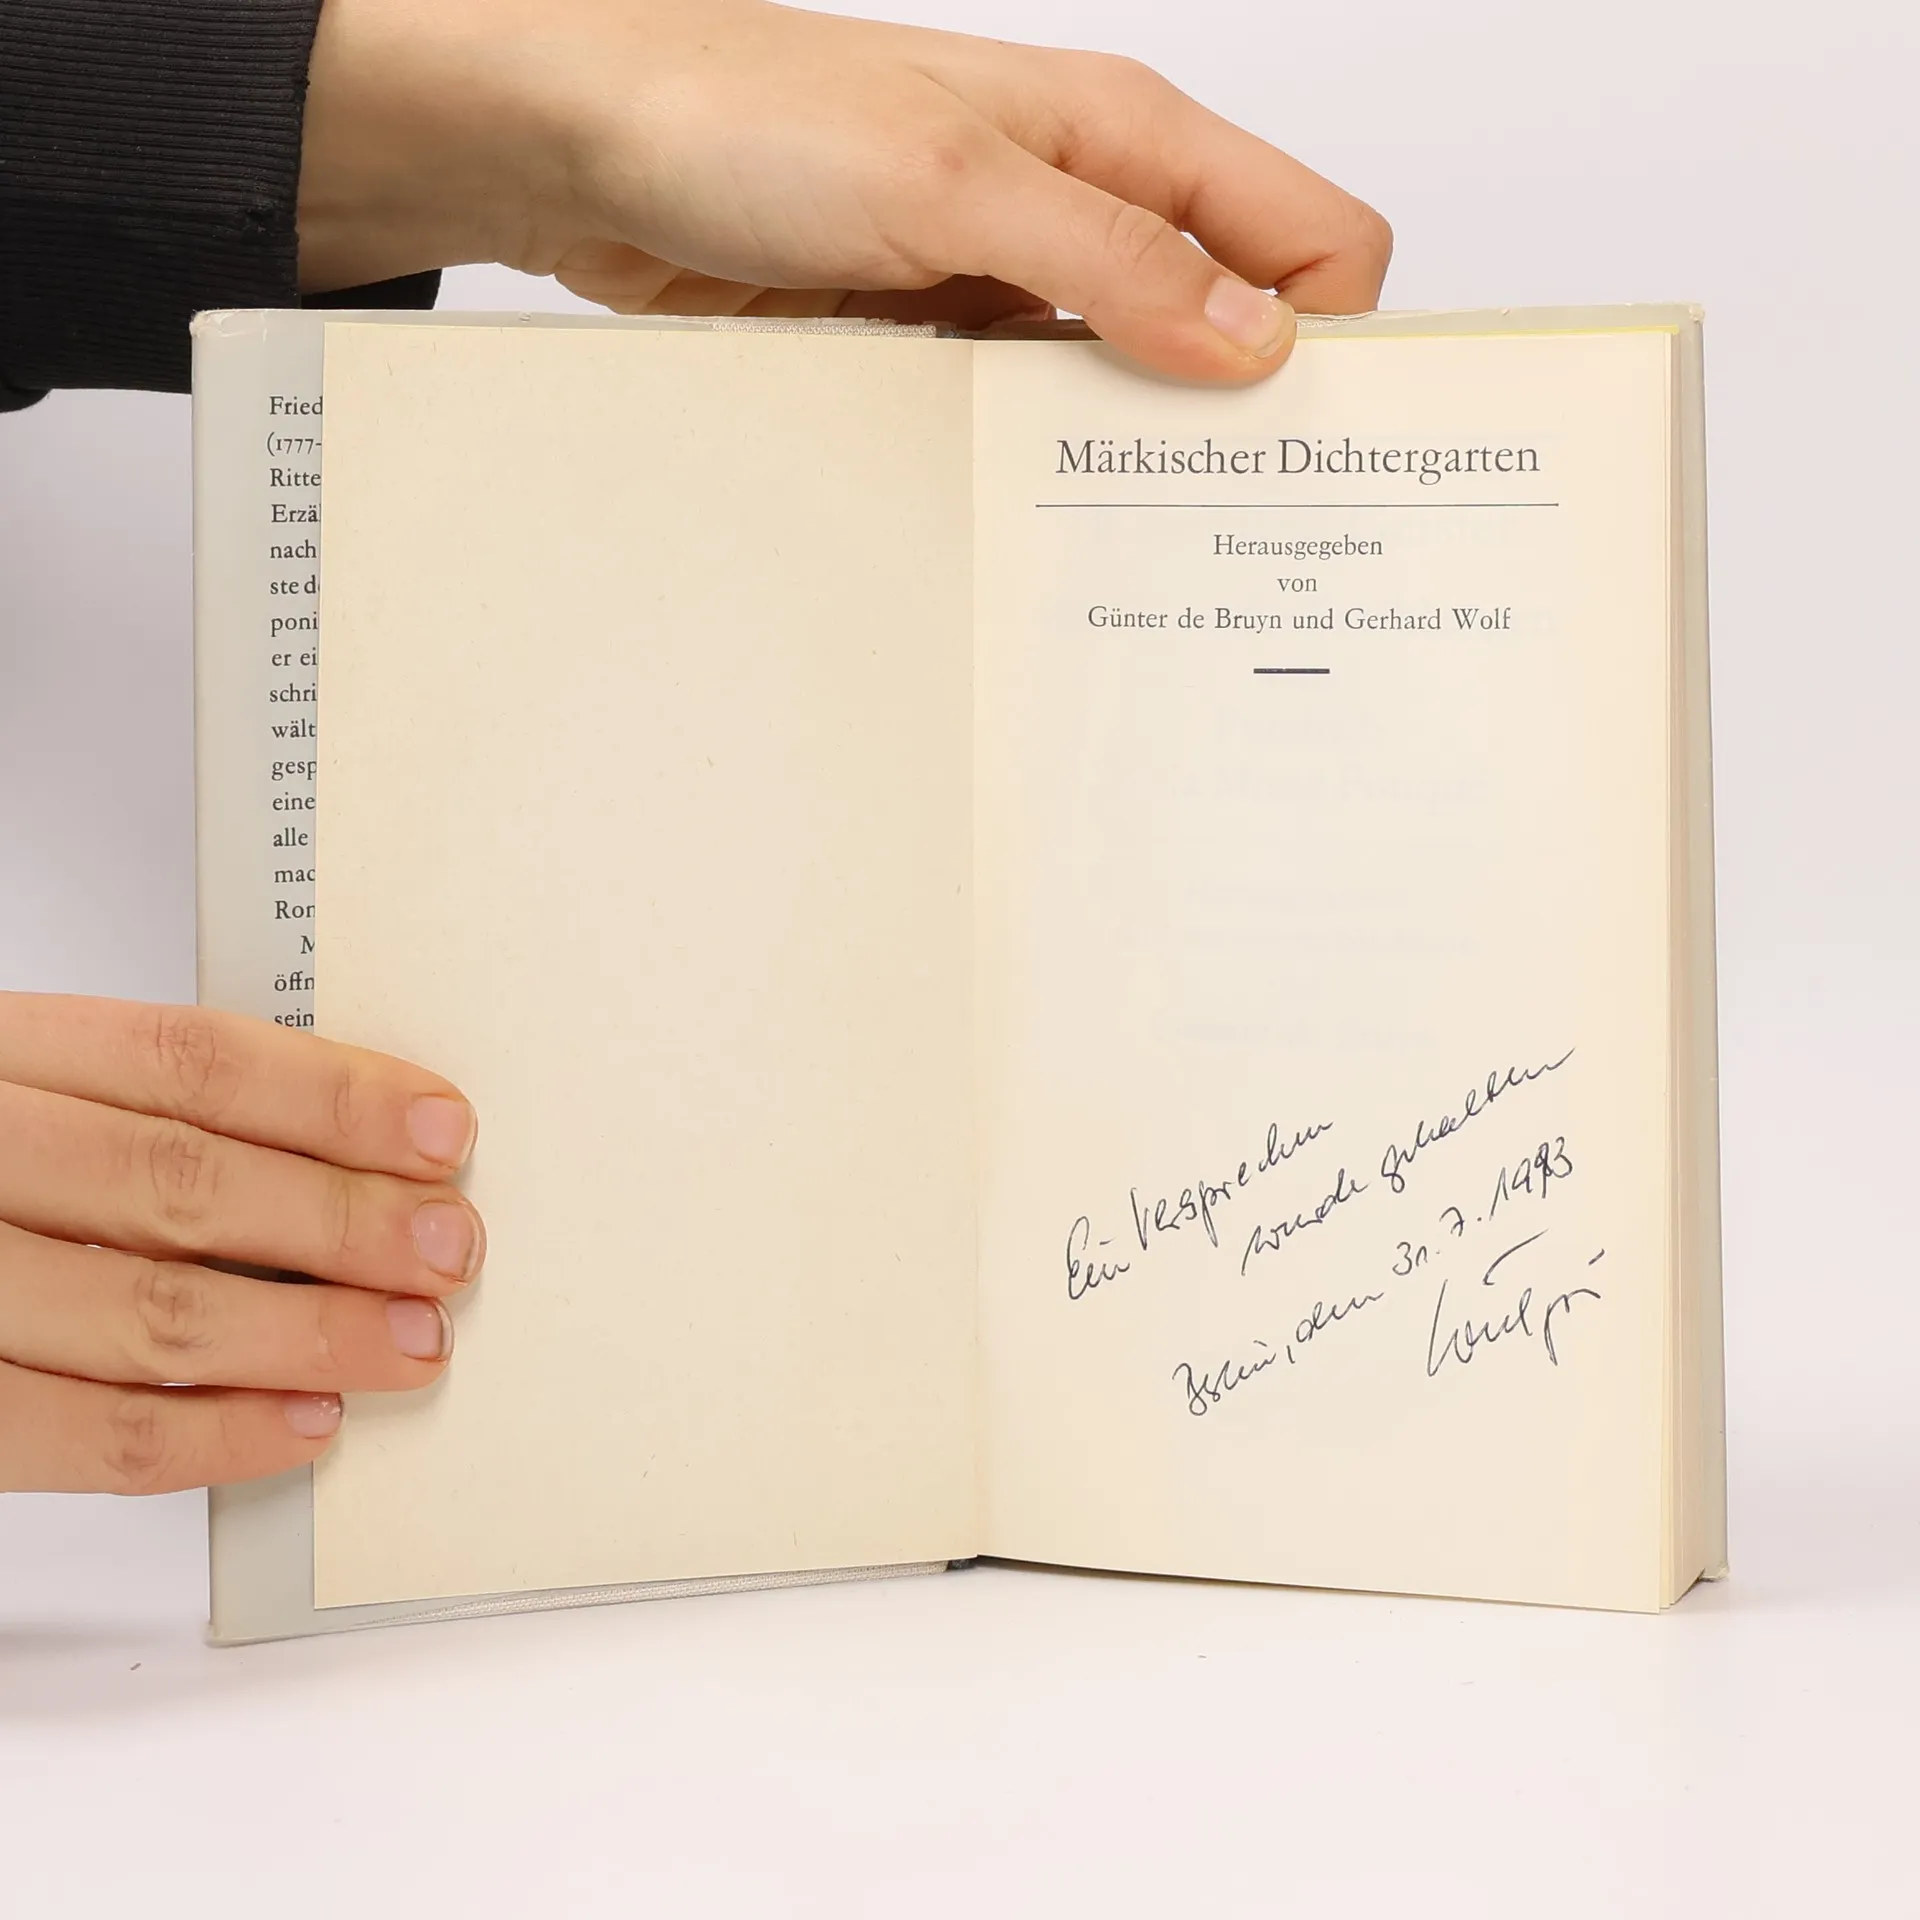 Fried
(1777-
Ritte
Erzäl
nach
ste d
poni
er ei
schri
wält
gesp
eine
alle
mac
Ron
M
öffn
sein
Märkischer Dichtergarten
Herausgegeben
von
Günter de Bruyn und Gerhard Wolf
Ein Versprechen
wurde gehalten
den 31. 7. 1993